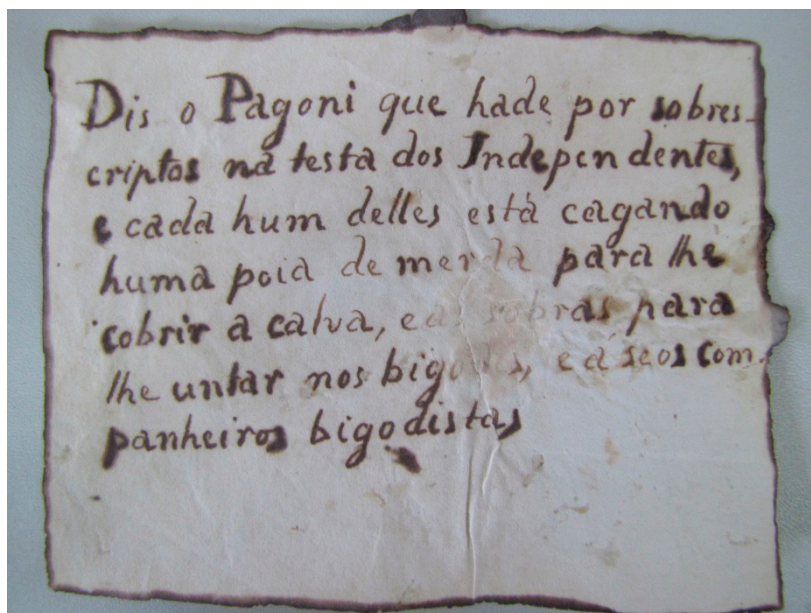 Dis o Pagoni que hade por sobres-
criptos na testa dos Independentes,
e cada hum delles està cagando
huma poia de merda para lhe
cobrir a calva, e as sobras para
lhe untar nos bigodes, e a seos com-
panheiros bigodistas